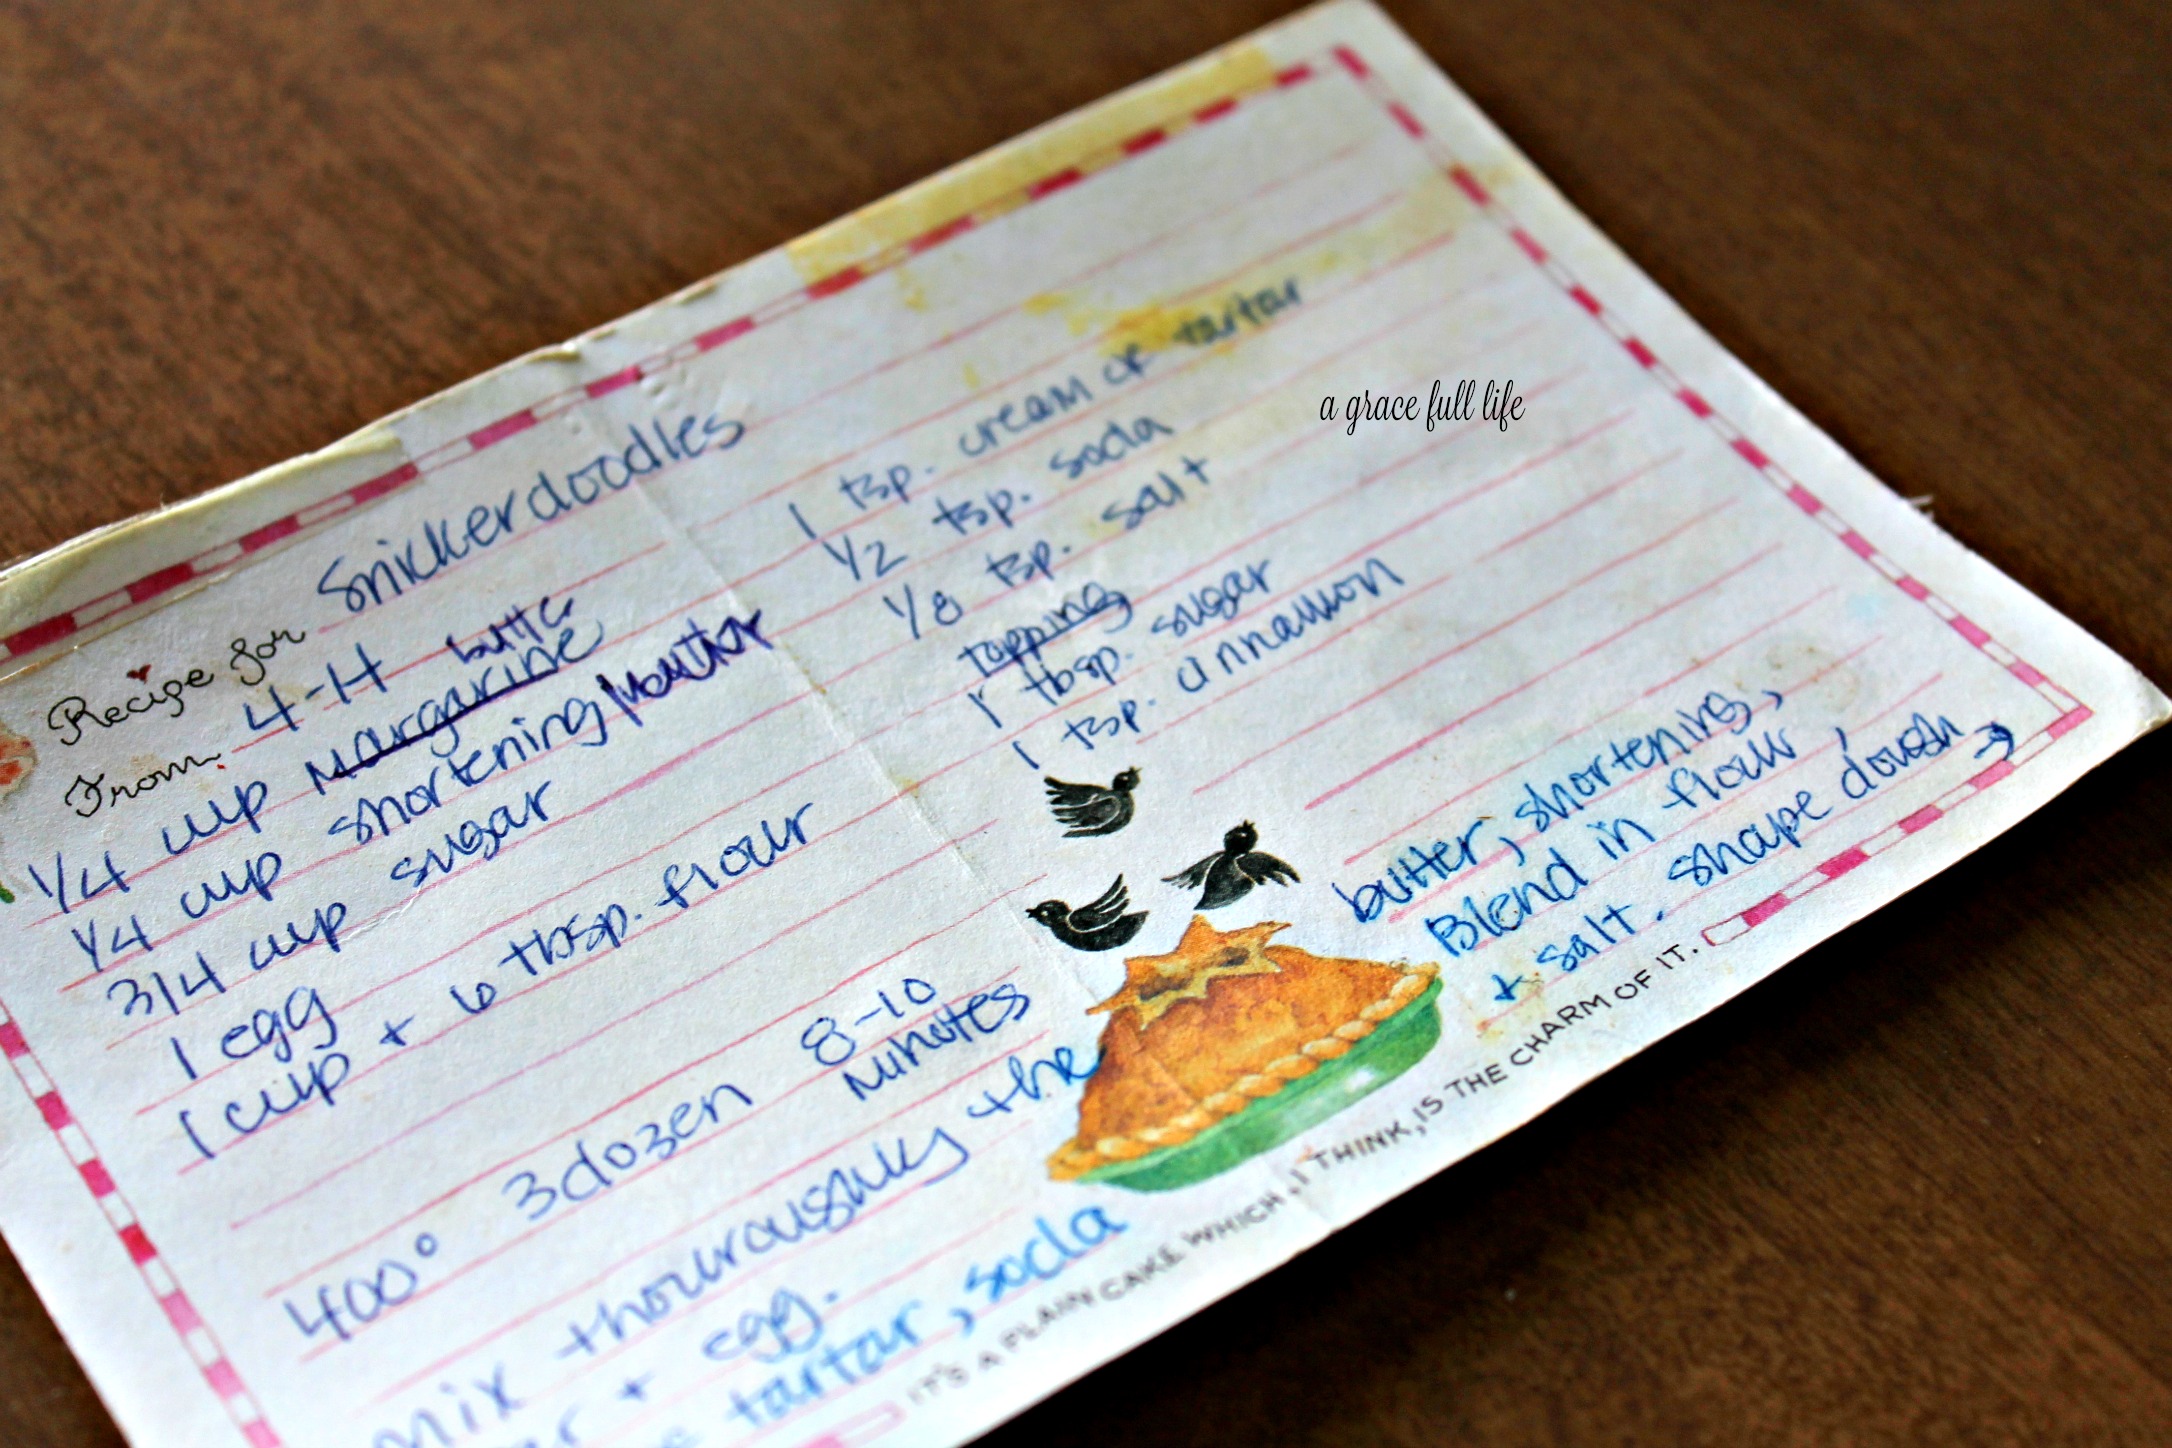 Recipe for Snickerdoodles
From 4-H
1/4 cup margarine butter
1/4 cup shortening
3/4 cup sugar
1 egg
1 cup + 6 tbsp. flour
1 tsp. cream of tartar
1/2 tsp. soda
1/8 tsp. salt
topping
1 tbsp. sugar
1 tsp. cinnamon
400° 3 dozen 8-10 minutes
mix thouroughly the butter, shortening,
+ egg. Blend in flour,
tartar, soda + salt. shape dough →
IT'S A PLAIN CAKE WHICH, I THINK, IS THE CHARM OF IT.
a grace full life